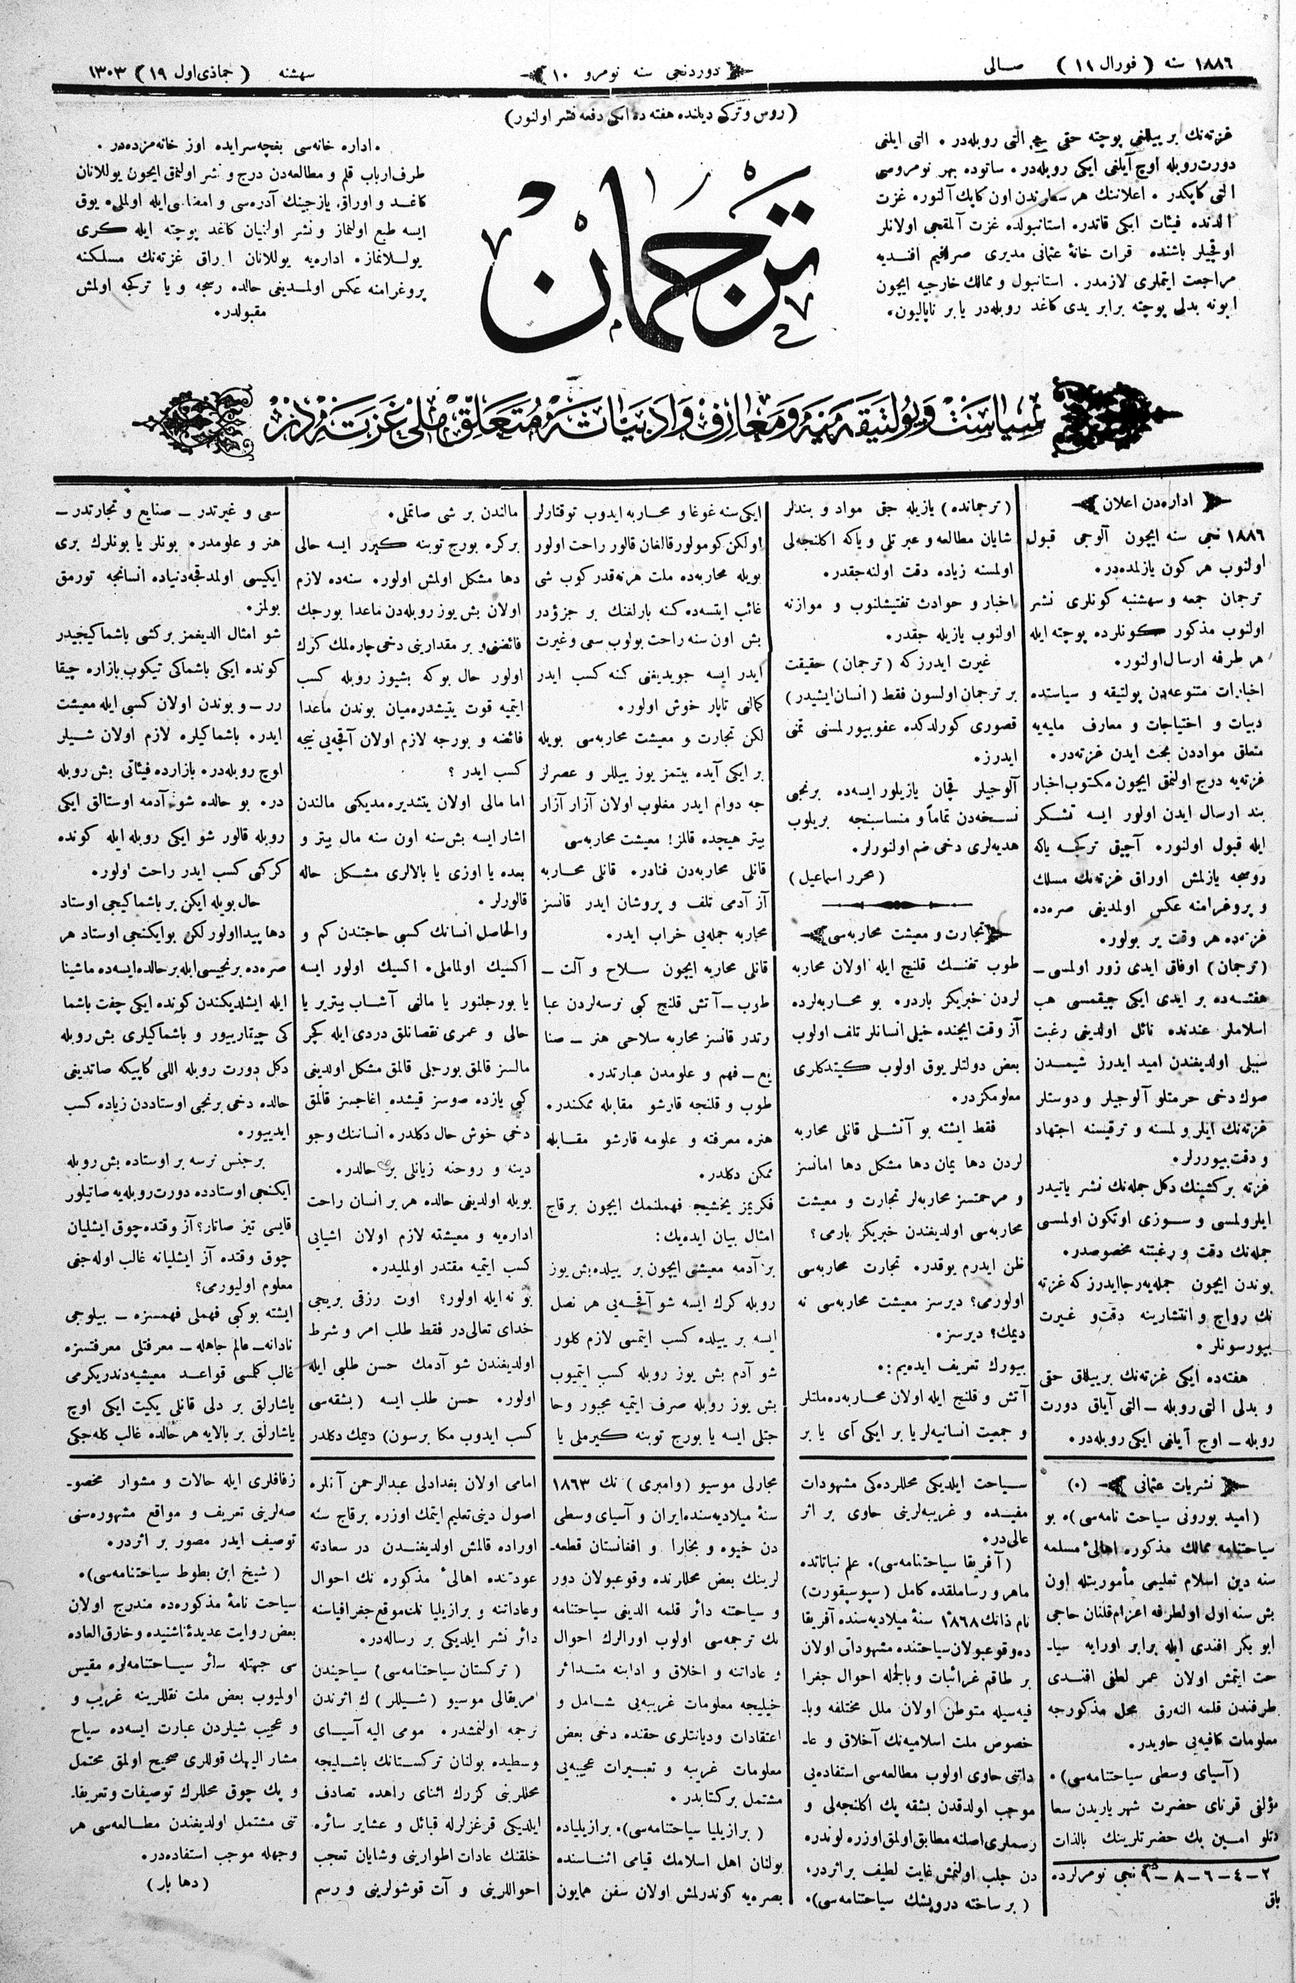 ١٨٨٦ سنه ( فورال ١١ ) صالى
دوردنجى سنه نومرو ١٠
سهشنبه ( جماذى اول ١٩ ) ١٣٠٣
(روس و تركى ديلنده هفته ده ايكى دفعه نشر اولنور)
غزته‌نك بر ييللغى پوچته حقى يله التى روبله‌در ٠ التى ايلغى
دورت روبله اوچ آيلغى ايكى روبله‌در ٠ ساتوده بهر نومروسى
التى كاپكدر ٠ اعلاننك هر سطرندن اون كاپك آلنور ٠ غزت
الدنده فيئات ايكى قاتدر ٠ استانبولده غزت آلمقجى اولانلر
اوقجيلر باشنده قرات خانهٔ عثمانى مديرى صرافيم افنديه
مراجعت ايتملرى لازمدر ٠ استانبول و ممالك خارجيه ايچون
ابونه بدلى پوچته برابر يدى كاغد روبله‌در يا بر ناپاليون ٠
ترجمان
٠ اداره خانه‌سى بغچه‌سرايده اوز خانه‌مزده‌در ٠
طرف ارباب قلم و مطالعه‌دن درج و نشر اولنمق ايچون يوللانان
كاغد و اوراق يازجينك آدره‌سى و امضاسى ايله اولملى يوق
ايسه طبع اولنماز و نشر اولنيان كاغد پوچته ايله كرى
يوللانماز ٠ اداره‌يه يوللانان اوراق غزته‌نك مسلكنه
پروغرامنه عكس اولمديغى حالده رسجه و يا تركجه اولمش
مقبولدر ٠
سياست و پولتيقه مدنيه و معارف و ادبياته متعلق ملى غزته‌در
اداره‌دن اعلان
١٨٨٦ نجى سنه ايچون آلوجى قبول
اولنوب هر كون يازلمده‌در ٠
ترجمان جمعه و سهشنبه كونلرى نشر
اولنوب مذكور كونلرده پوچته ايله
هر طرفه ارسال اولنور ٠
اخبارات متنوعه‌دن پولتيقه و سياستده
دبيات و احتياجات و معارف مليه‌يه
متعلق مواددن بحث ايدن غزته‌در ٠
غزته‌يه درج اولنمق ايچون مكتوب اخبار
بند ارسال ايدن اولور ايسه تشكر
ايله قبول اولنور ٠ آچيق تركجه ياكه
روسجه يازلمش اوراق غزته‌نك مسلك
و پروغرامنه عكس اولمديغى صره‌ده
غزته‌ده هر وقت ير بولور ٠
(ترجمان) اوفاق ايدى زور اولمسى ــ
هفته‌ده بر ايدى ايكى چيقمسى هب
اسلاملر عندنده نائل اولديغى رغبت
سببلى اولديغندن اميد ايدرز شيمدن
صوك دخى حرمتلو آلوجيلر و دوستلر
غزته‌نك ايلرولمسنه و ترقيسنه اجتهاد
و دقت بيوررلر ٠
غزته بر كشينك دكل جمله‌نك نشر ياتيدر
ايلرولمسى و سوزى اوتكون اولمسى
جمله‌نك دقت و رغبتنه مخصوصدر ٠
بوندن ايچون جمله‌يه رجا ايدرز كه غزته
نك رواج و انتشارينه دقت و غيرت
بيورسونلر ٠
هفته‌ده ايكى غزته‌نك بر ييللق حقى
و بدلى التى روبله ــ التى آيلق دورت
روبله ــ اوچ آيلغى ايكى روبله‌در ٠
(ترجمانده) يازيله جق مواد و بندلر
شايان مطالعه و عبرتلى و ياكه اكلنجه‌لى
اولمسنه زياده دقت اولنه‌جقدر ٠
اخبار و حوادث تفتيشلنوب و موازنه
اولنوب يازيله جقدر ٠
غيرت ايدرز كه (ترجمان) حقيقت
بر ترجمان اولسون فقط (انسان ايشيدر)
قصورى كورلدكده عفو بيورلمسنى تمنى
ايدرز ٠
آلوجيلر قچان يازيلور ايسه‌ده برنجى
نسخه‌دن تماماً و مناسبنجه بريلوب
هديه‌لرى دخى ضم اولنورلر ٠
(محرر اسماعيل)
تجارت و معيشت محاربه‌سى
طوب تفنك قلنچ ايله اولان محاربه
لردن خبريكز باردر ٠ بو محاربه‌لرده
آز وقت ايچنده خيلى انسانلر تلف اولوب
بعض دولتلر يوق اولوب كيتدكلرى
معلومكزدر ٠
فقط ايشته بو آتشلى قانلى محاربه
لردن دها يمان دها مشكل دها امانسز
و مرحمتسز محاربه‌لر تجارت و معيشت
محاربه‌سى اولديغندن خبريكز بارمى؟
ظن ايدرم يوقدر ٠ تجارت محاربه‌سى
اولورمى؟ ديرسز معيشت محاربه‌سى نه
ديمك؟ ديرسز ٠
بيورك تعريف ايده‌يم :
آتش و قلنچ ايله اولان محاربه‌ده ملتلر
و جمعيت انسانيه‌لر يا بر ايكى آى يا بر
ايكى سنه غوغا و محاربه ايدوب توقتارلر
اولكن كومولور قالغان قالور راحت اولور
بويله محاربه‌ده ملت هرنه‌قدر كوب شى
غائب ايتسه‌ده كنه بارلغنك بر جزؤدر
بش اون سنه راحت بولوب سعى و غيرت
ايدر ايسه جويديغنى كنه كسب ايدر
كمالنى تاپار خوش اولور ٠
لكن تجارت و معيشت محاربه‌سى بويله
بر ايكى آيده بيتمز يوز ييللر و عصرلر
جه دوام ايدر مغلوب اولان آزار آزار
بيتر هيچده قالمز! معيشت محاربه‌سى
قانلى محاربه‌دن فنادر ٠ قانلى محاربه
آز آدمى تلف و پروشان ايدر قانسز
محاربه جمله‌يى خراب ايدر ٠
قانلى محاربه ايچون سلاح و آلت ــ
طوب ــ آتش قلنج كبى نرسه‌لردن عبا
رتدر قانسز محاربه سلاحى هنر ــ صنا
يع ــ فهم و علومدن عبارتدر ٠
طوب و قلنجه قارشو مقابله ممكندر ٠
هنره معرفته و علومه قارشو مقابله
ممكن دكلدر ٠
فكريمز يخشيجه فهملنمك ايچون برقاج
امثال بيان ايده‌يك :
بر آدمه معيشتى ايچون بر ييلده بش يوز
روبله كرك ايسه شو آقچه‌يى هر نصل
ايسه بر ييلده كسب ايتمسى لازم كلور
شو آدم بش يوز روبله كسب ايتميوب
بش يوز روبله صرف ايتميه مجبور و حا
جتلى ايسه يا بورج توبنه كيرملى يا
مالندن بر شى صاتملى ٠
بركره بورج توبنه كيرر ايسه حالى
دها مشكل اولمش اولور ٠ سنه‌ده لازم
اولان بش يوز روبله‌دن ماعدا بورجك
فائضنى و بر مقدارينى دخى چاره‌لمك كرك
اولور حال بوكه بشيوز روبله كسب
ايتميه قوت يتيشدره‌ميان بوندن ماعدا
فائضه و بورجه لازم اولان آقچه‌يى نيجه
كسب ايدر ؟
اما مالى اولان يتشديره مديكنى مالندن
اشار ايسه بش سنه اون سنه مال بيتر و
بعده يا اوزى يا بالالرى مشكل حاله
قالورلر ٠
والحاصل انسانك كسبى حاجتندن كم و
اكسيك اولماملى ٠ اكسيك اولور ايسه
يا بورجلنور يا مالنى آشاب بيتيرر يا
حالى و عمرى نقصانلق دردى ايله كچر
مالسز قالمق بورجلى قالمق مشكل اولديغى
كبى يازده صوسز قيشده اغاجسز قالمق
دخى خوش حال دكلدر ٠ انساننك وجو
دينه و روحنه زيانلى بر حالدر ٠
بويله اولديغى حالده هر بر انسان راحت
اداره‌يه و معيشته لازم اولان اشيايى
كسب ايتميه مقتدر اولمليدر ٠
بو نه ايله اولور؟ اوت رزقى بريجى
خداى تعالى‌در فقط طلب امر و شرط
اولديغندن شو آدمك حسن طلبى ايله
اولور ٠ حسن طلب ايسه (بشقه‌سى
كسب ايدوب مكا برسون) ديمك دكلدر
سعى و غيرتدر ــ صنايع و تجارتدر ــ
هنر و علومدر ٠ بونلر يا بونلرك برى
ايكيسى اولمدقجه دنياده انسانجه تورمق
بولمز ٠
شو امثال الديغمز بركشى باشماكيجيدر
كونده ايكى باشماكى تيكوب بازاره چيقا
رر ــ و بوندن اولان كسبى ايله معيشت
ايدر ٠ باشماكيلره لازم اولان شيلر
اوچ روبله‌در ٠ بازارده فيئاتى بش روبله
در ٠ بو حالده شو آدمه اوستالق ايكى
روبله قالور شو ايكى روبله ايله كونده
كركنى كسب ايدر راحت اولور ٠
حال بويله ايكن بر باشماكيجى اوستاد
دها پيدا اولور لكن بو ايكنجى اوستاد هر
صره‌ده برنجيسى ايله بر حالده ايسه‌ده ماشينا
ايله ايشلديكندن كونده ايكى چفت باشما
كى چيقارييور و باشماكيلرى بش روبله
دكل دورت روبله اللى كاپيكه صاتديغى
حالده دخى برنجى اوستاددن زياده كسب
ايدييور ٠
برجنس نرسه بر اوستاده بش روبله
ايكنجى اوستادده دورت روبله‌يه صاتيلور
قايسى تيز صاتار؟ آز وقتده چوق ايشليان
چوق وقتده آز ايشليانه غالب اوله‌جغى
معلوم اوليورمى؟
ايشته بوكبى فهملى فهمسزه ــ بيلوجى
نادانه ــ عالم جاهله ــ معرفتلى معرفتسزه
غالب كلمسى قواعد معيشيه‌دندر يكرمى
ياشارلق بر دلى قانلى يكيت ايكى اوچ
ياشارلق بر بالايه هر حالده غالب كله‌جكى
نشريات عثمانى (٠)
(اميد بورونى سياحت نامه‌سى) ٠ بو
سياحتنامه ممالك مذكوره اهالئ مسلمه
سنه دين اسلام تعليمى مأموريتله اون
بش سنه اول اولطرفه اعزام قلنان حاجى
ابو بكر افندى ايله برابر اورايه سيا
حت ايتمش اولان عمر لطفى افندى
طرفندن قلمه النه‌رق محل مذكورجه
معلومات كافيه‌يى حاويدر ٠
(آسياى وسطى سياحتنامه‌سى) ٠
مؤلفى قرناى حضرت شهر ياريدن سعا
دتلو امين بك حضرتلرينك بالذات
٢ــ٤ــ٦ــ٨ــ٩ نجى نومرلرده
باق
سياحت ايلديكى محللرده‌كى مشهودات
مفيده و غريبه‌لرينى حاوى بر اثر
عالى‌در ٠
(آفريقا سياحتنامه‌سى) ٠ علم نباتاتده
ماهر و رساملقده كامل (سپوسيقورت)
نام ذاتك ١٨٦٨ سنهٔ ميلاديه‌سنده آفريقا
ده وقوعبولان سياحتنده مشهوداتى اولان
بر طاقم غرائبات و بالجمله احوال جغرا
فيه‌سيله متوطن اولان ملل مختلفه وبا
خصوص ملت اسلاميه‌نك آخلاق و عا
داتنى حاوى اولوب مطالعه‌سى استفاده‌يى
موجب اولدقدن بشقه پك اكلنجه‌لى و
رسملرى اصلنه مطابق اولمق اوزره لوندره
دن جلب اولنمش غايت لطيف براثردر ٠
(بر ساخته درويشك سياحتنامه‌سى) ٠
مجارلى موسيو (وامبرى) نك ١٨٦٣
سنهٔ ميلاديه‌سنده ايران و آسياى وسطى
دن خيوه و بخارا و افغانستان قطعه
لرينك بعض محللرنده وقوعبولان دور
و سياحتنه دائر قلمه الديغى سياحتنامه
نك ترجمه‌سى اولوب اورالرك احوال
و عاداتنه و اخلاق و ادابنه متدائر
خيليجه معلومات غريبه‌يى شامل و
اعتقادات و ديانتلرى حقنده دخى بعض
معلومات غريبه و تعبيرات عجيبه‌يى
مشتمل بر كتابدر ٠
(برازيليا سياحتنامه‌سى) ٠ برازيلياده
بولنان اهل اسلامك قيامى اثناسنده
بصره‌يه كوندرلمش اولان سفن همايون
امامى اولان بغدادلى عبدالرحمن آنلره
اصول دينى تعليم ايتمك اوزره برقاج سنه
اوراده قالمش اولديغندن در سعادته
عودتنده اهالئ مذكوره نك احوال
وعاداتنه و برازيليا نك موقع جغرافياسنه
دائر نشر ايلديكى بر رساله‌در ٠
(تركستان سياحتنامه‌سى) سياحيندن
امريقالى موسيو (شيللر) ك اثرندن
ترجمه اولنمشدر ٠ مومى اليه آسياى
وسطيده بولنان تركستانك باشليجه
محللرينى كزرك اثناى راهده تصادف
ايلديكى قرغزلرله قبائل و عشاير سائره
خلقنك عادات اطوارينى و شايان تعجب
احواللرينى و آت قوشولرينى و رسم
زفافلرى ايله حالات و مشوار مخصو
صه‌لرينى تعريف و مواقع مشهوره‌سنى
توصيف ايدر مصور بر اثردر ٠
(شيخ ابن بطوط سياحتنامه‌سى) ٠
سياحت نامهٔ مذكوره‌ده مندرج اولان
بعض روايت عديدهٔ ناشنيده و خارق العاده
سى جهتله سائر سياحتنامه‌لره مقيس
اولميوب بعض ملت نقللرينه غريب و
و عجيب شيلردن عبارت ايسه‌ده سياح
مشار اليهك قوللرى صحيح اولمق محتمل
و پك چوق محللرك توصيفات و تعريفا
تنى مشتمل اولديغندن مطالعه‌سى هر
وجهله موجب استفاده‌در ٠
(دها بار)